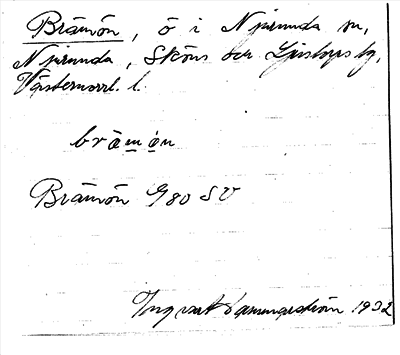 Brämön, ö i Njurunda sn,
Njurunda, Sköns och Ljustorps tg,
Västernorrl. l.
brämön
Brämön G80 SV
Ingvart 1932